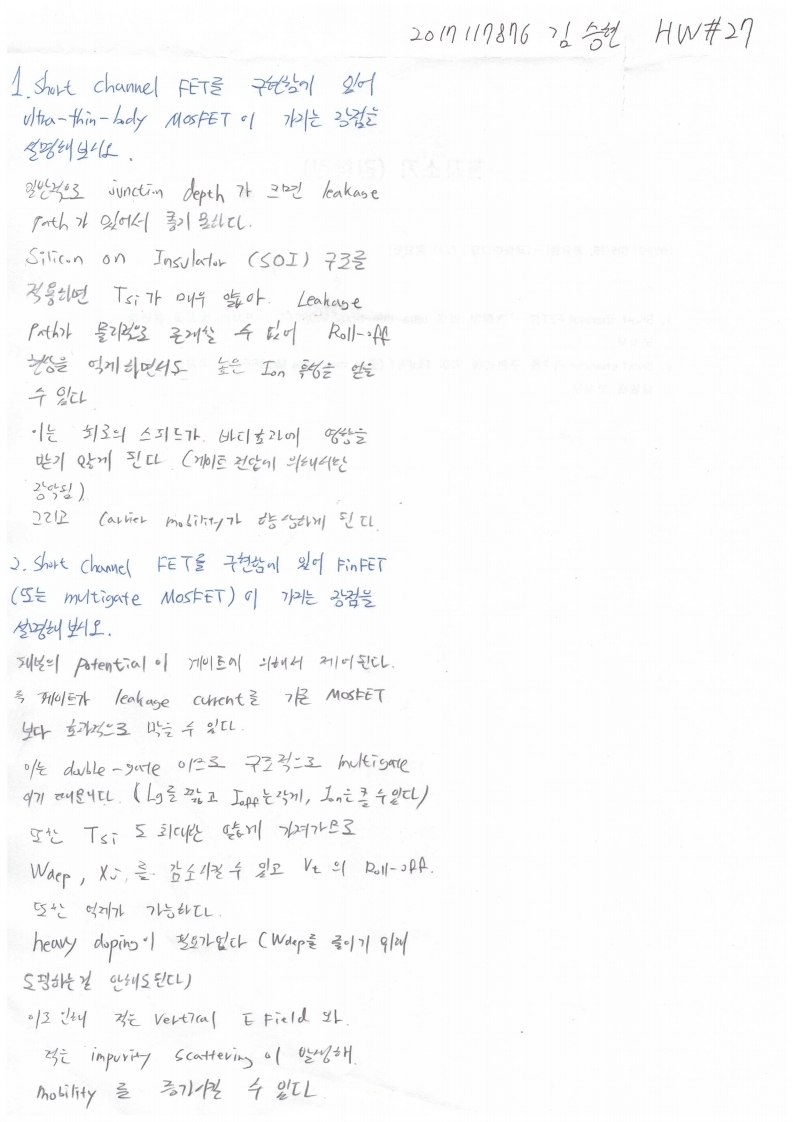 2017117876 김 승현 HW#27
1. Short channel FET를 구현함에 있어
ultra-thin-body MOSFET이 가지는 장점을
설명해보시오.
일반적으로 junction depth가 크면 leakage
Path가 있어서 좋지 못하다.
Silicon on Insulator (SOI) 구조를
적용하면 Tsi가 매우 얇아. Leakage
Path가 물리적으로 존재할 수 없어 Roll-off
현상을 억제하면서도 높은 Ion 특성을 얻을
수 있다
이는 회로의 스피드가 바디효과에 영향을
받지 않게 된다 (게이트 전압에 의해서만
장악됨)
그리고 Carrier mobility가 향상하게 된다
2. Short channel FET를 구현함에 있어 FinFET
(또는 multigate MOSFET)이 가지는 장점을
설명해 보시오.
채널의 Potential이 게이트에 의해서 제어된다.
즉 게이트가 leakage current를 기존 MOSFET
보다 효과적으로 막을 수 있다.
이는 double-gate 이므로 구조적으로 multigate
이기 때문이다. (Lg를 짧고 Ioff는 작게, Ion는 클 수 있다)
또한 Tsi 도 최대한 얇게 가져가므로
Wdep, Xj,를 감소시킬 수 있고 Vt 의 Roll-off.
또한 억제가 가능하다.
heavy doping이 필요가 없다 (Wdep를 줄이기 위해
도핑하는걸 안해도된다)
이로 인해 적은 vertical E Field 와.
적은 impurity scattering이 발생해
mobility 를 증가시킬 수 있다